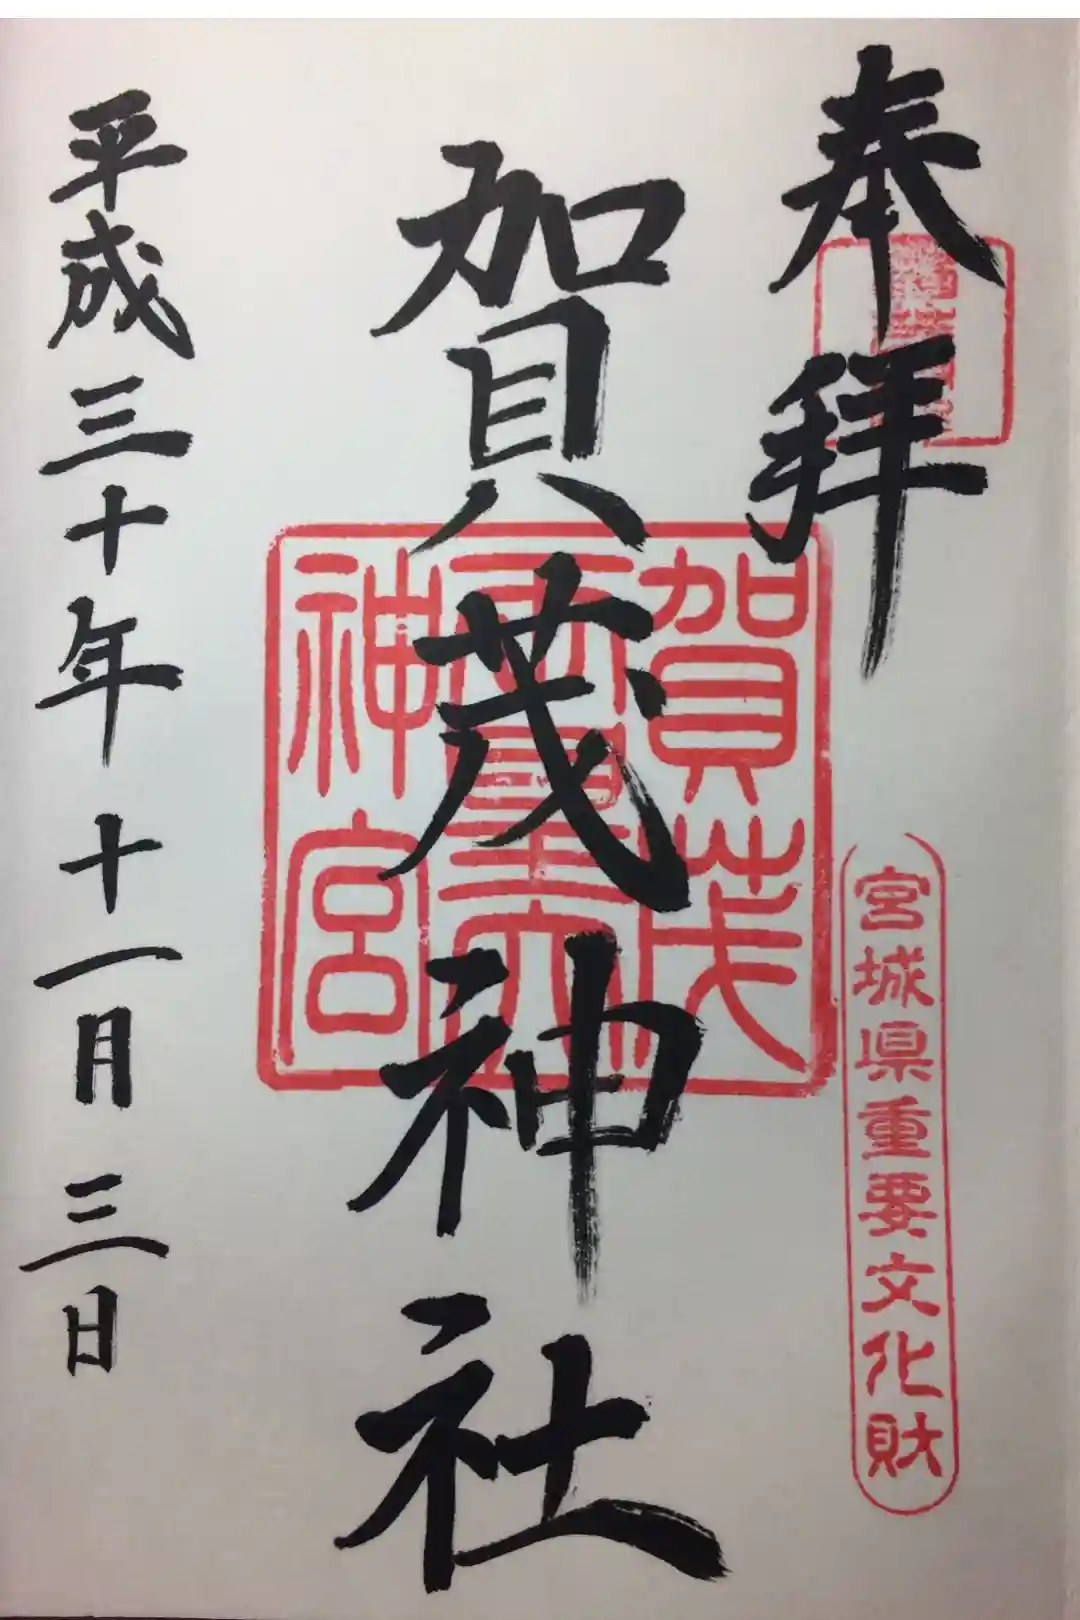 奉拝
宮城県重要文化財
賀茂神社
賀茂
皇大
神宮
平成三十年十一月三日